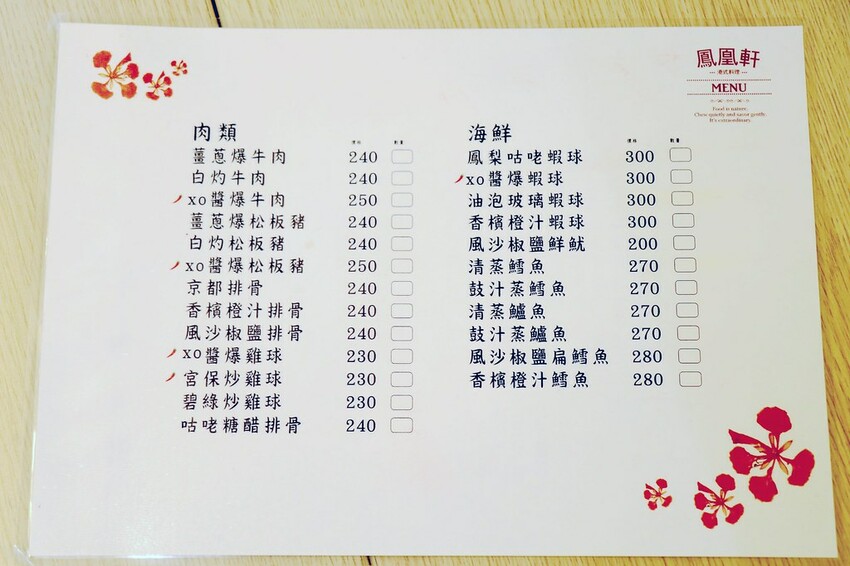 鳳凰軒
港式料理
MENU
Food is nature.
Chew quietly and savor gently.
It's extraordinary.
肉類
價格 數量
薑蔥爆牛肉 240
白灼牛肉 240
xo醬爆牛肉 250
薑蔥爆松板豬 240
白灼松板豬 240
xo醬爆松板豬 250
京都排骨 240
香檳橙汁排骨 240
風沙椒鹽排骨 240
xo醬爆雞球 230
宮保炒雞球 230
碧綠炒雞球 230
咕咾糖醋排骨 240
海鮮
價格 數量
鳳梨咕咾蝦球 300
xo醬爆蝦球 300
油泡玻璃蝦球 300
香檳橙汁蝦球 300
風沙椒鹽鮮魷 200
清蒸鱈魚 270
鼓汁蒸鱈魚 270
清蒸鱸魚 270
鼓汁蒸鱸魚 270
風沙椒鹽扁鱈魚 280
香檳橙汁鱈魚 280